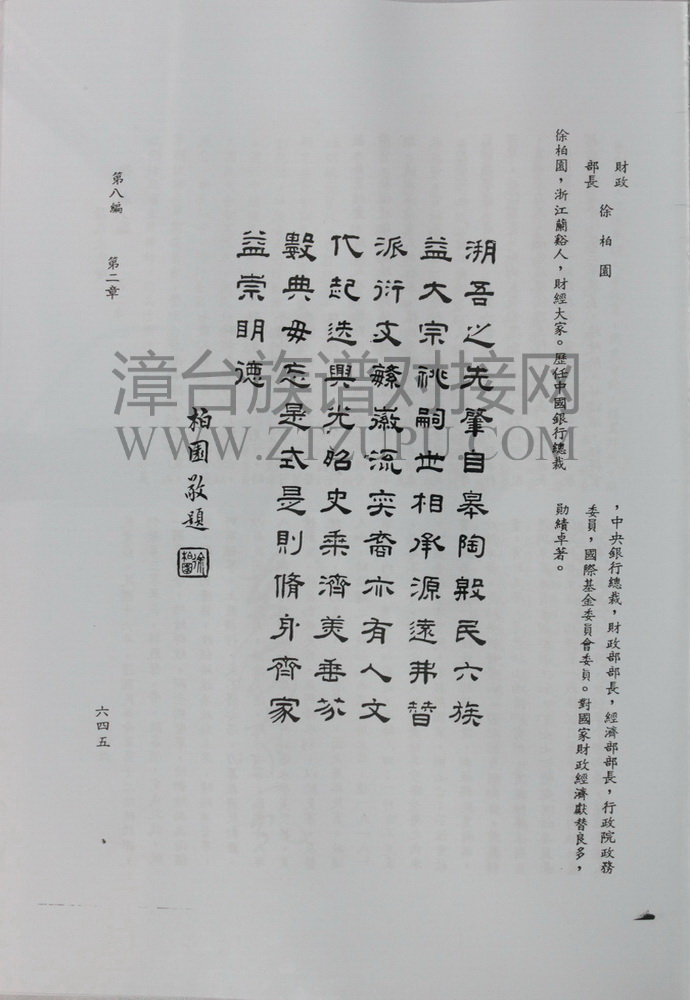 財政
部長 徐柏園
徐柏園，浙江蘭谿人，財經大家。歷任中國銀行總裁
，中央銀行總裁，財政部部長，經濟部部長，行政院政務
委員，國際基金委員會委員。對國家財政經濟獻替良多，
勛績卓著。
溯吾之先肇自皋陶殷民六族
益大宗祧嗣世相承源遠弗替
派衍支繁徽流奕裔亦有人文
代起迭興光昭史乘濟美垂芬
數典毋忘是式是則脩身齊家
益崇明德
柏園敬題
徐柏園
第八編 第二章
六四五
漳台族谱对接网
WWW.ZTZUPU.COM